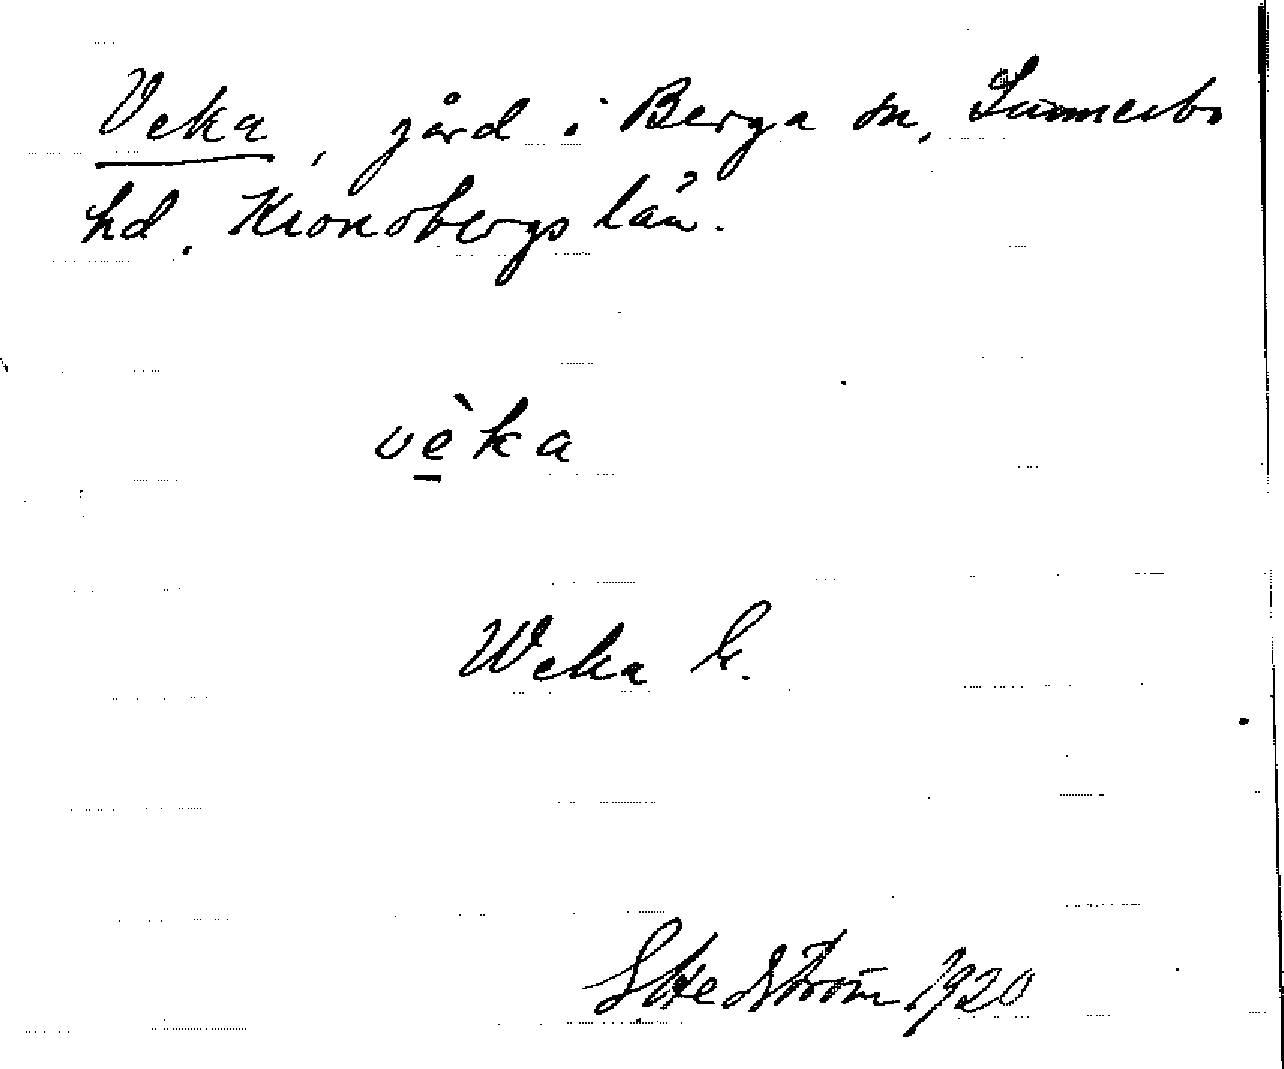 Veka, gård i Berga sn, Sunnerbo
hd. Kronobergs län.
vèka
Weka G.
G Hedström 1920